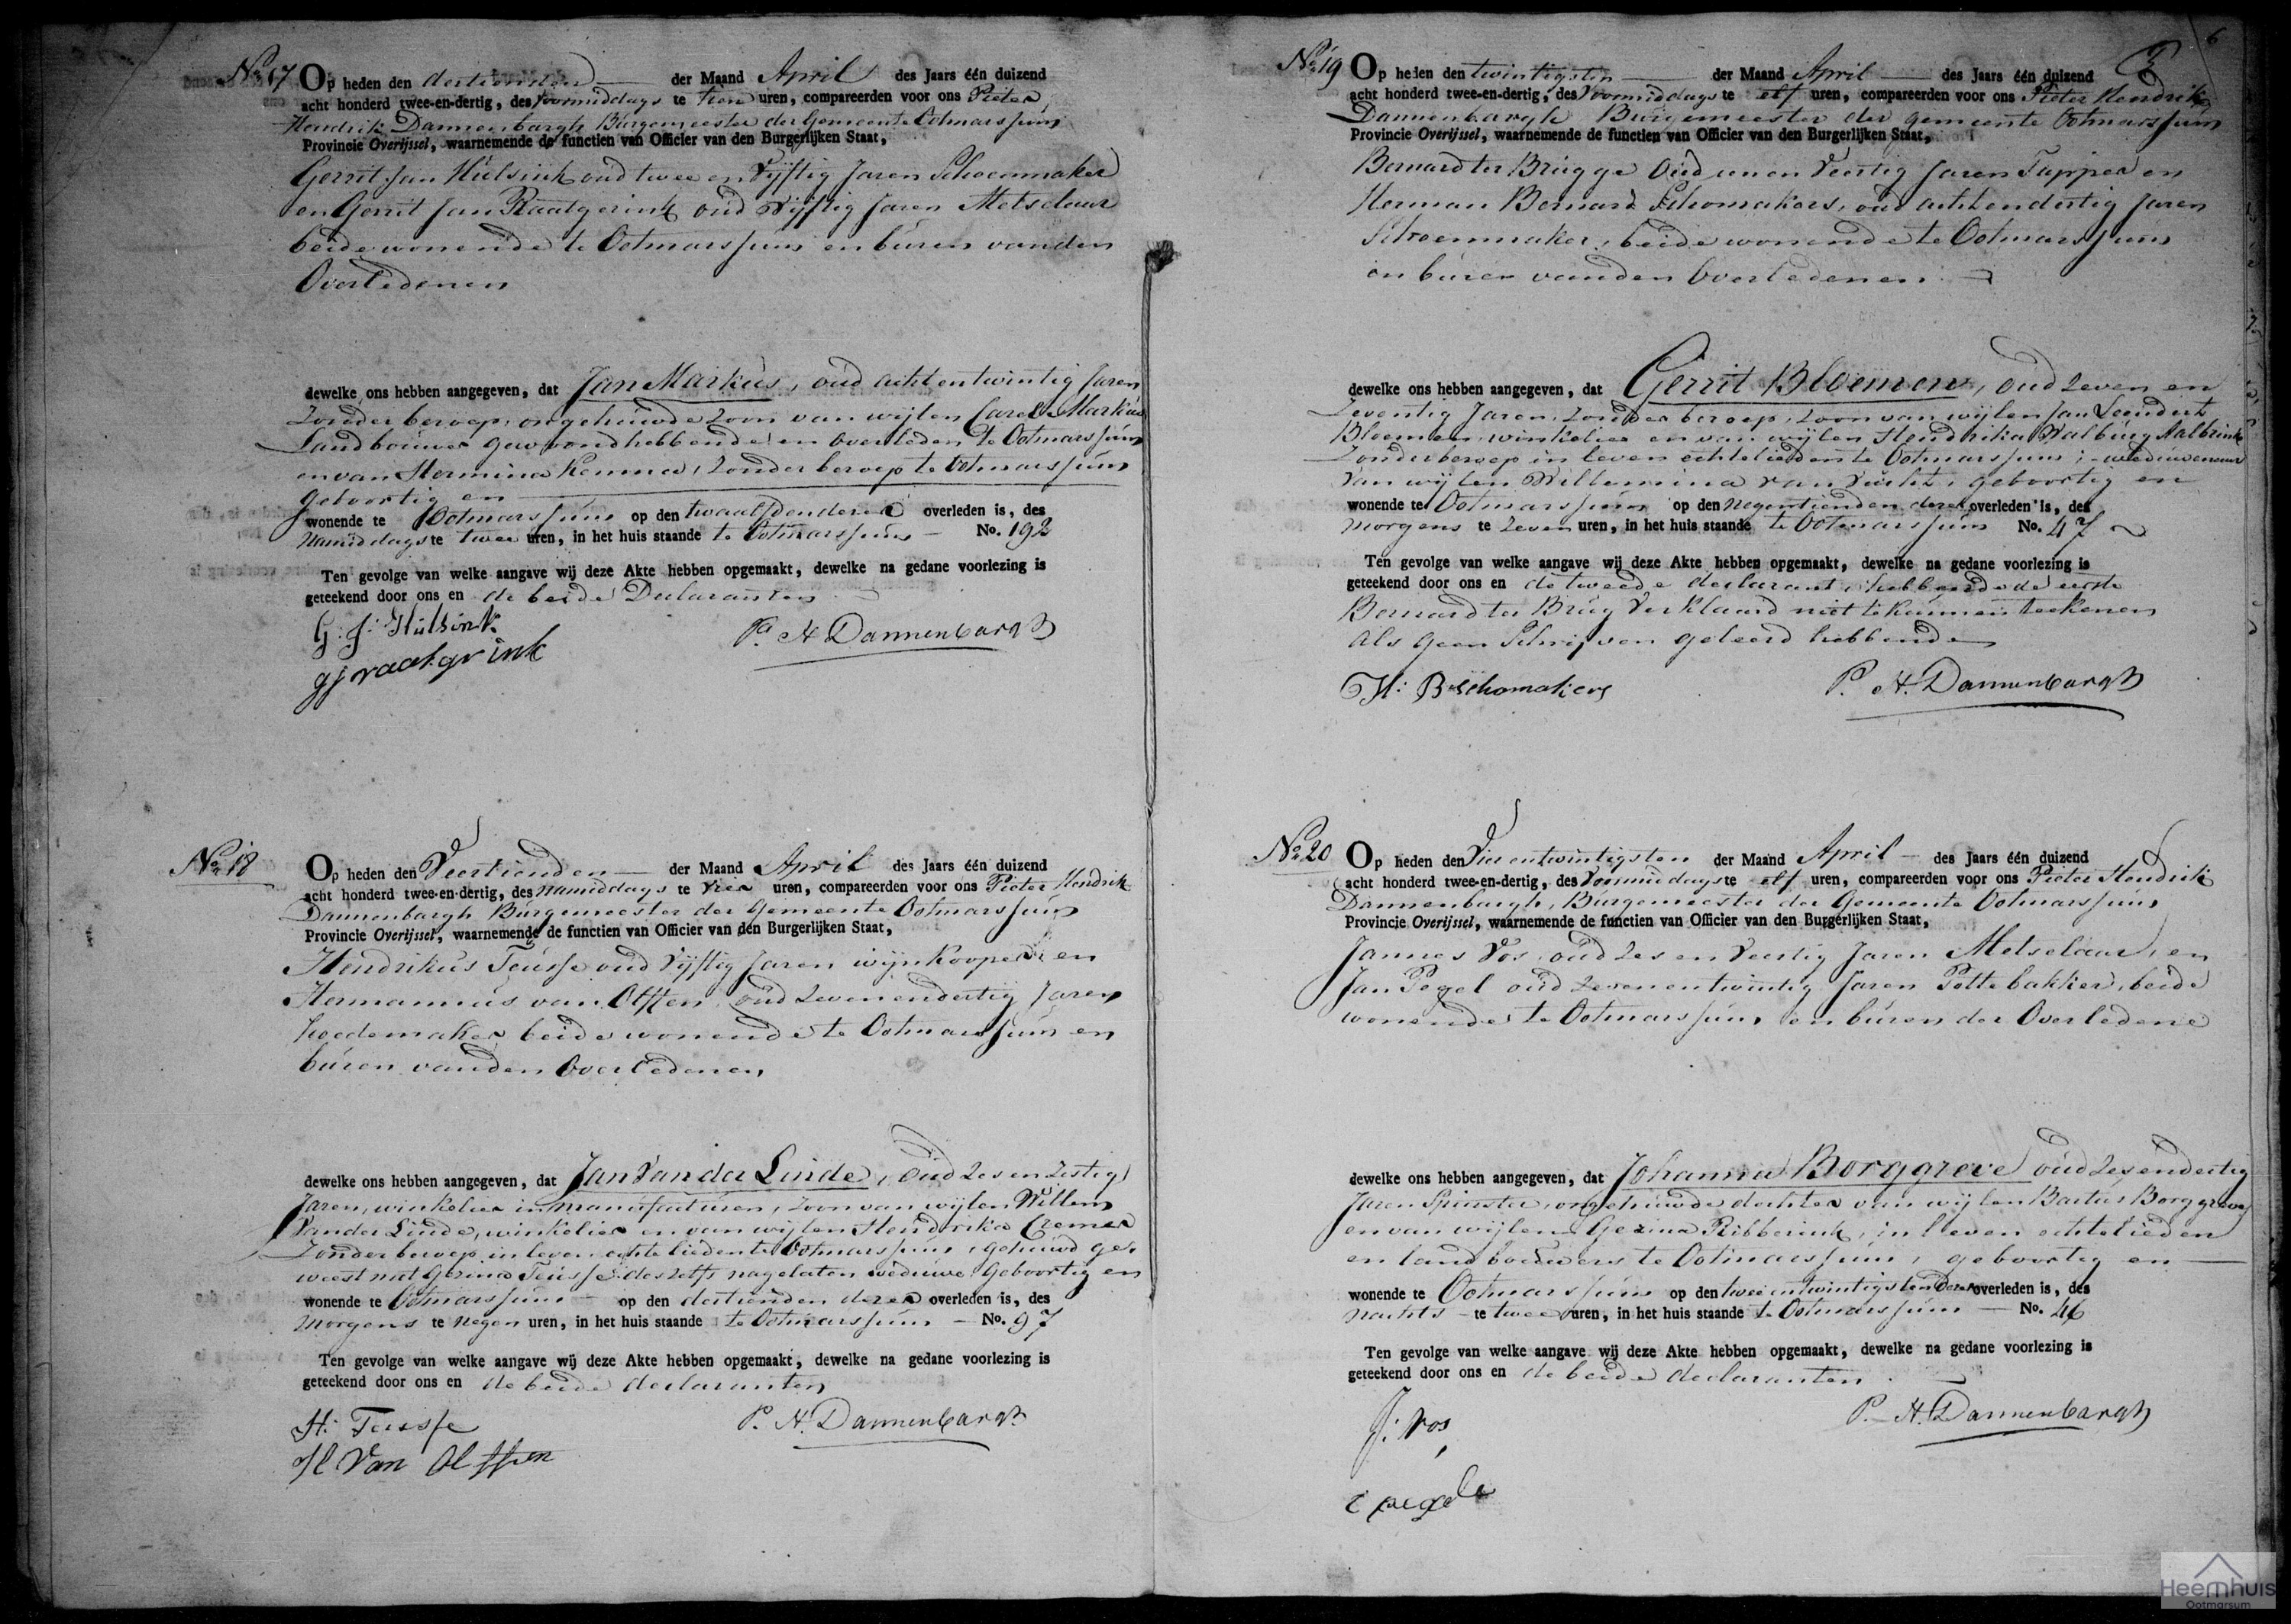 No 17 Op heden den dertienden der Maand April des Jaars één duizend
acht honderd twee-en-dertig, des voormiddags te tien uren, compareerden voor ons Pieter
Hendrik Dannenbargh Burgemeester der Gemeente Ootmarssum
Provincie Overijssel, waarnemende de functien van Officier van den Burgerlijken Staat,
Gerrit Jan Hulsink oud twee en Vijftig Jaren Schoenmaker
en Gerrit Jan Raatgerink oud Vijftig Jaren Metselaar
beide wonende te Ootmarssum en buren van den
Overledenen
dewelke ons hebben aangegeven, dat Jan Markus, oud acht en twintig Jaren
Zonder beroep, ongehuwde Zoon van wijlen Carel Markus
Landbouwer gewoond hebbende en overleden te Ootmarssum
en van Hermina Kemna, Zonder beroep te Ootmarssum
geboortig en
wonende te Ootmarssum op den twaalfden dezer overleden is, des
Namiddags te twee uren, in het huis staande te Ootmarssum No. 192
Ten gevolge van welke aangave wij deze Akte hebben opgemaakt, dewelke na gedane voorlezing is
geteekend door ons en de beide Declaranten
G: J: Hulsink P. H Dannenbargh
gj raatgrink
No 18
Op heden den Veertienden der Maand April des Jaars één duizend
acht honderd twee-en-dertig, des namiddags te vier uren, compareerden voor ons Pieter Hendrik
Dannenbargh Burgemeester der Gemeente Ootmarssum
Provincie Overijssel, waarnemende de functien van Officier van den Burgerlijken Staat,
Hendrikus Teusse oud Vijftig Jaren wijnkooper en
Hermannus van Olffen, oud Zeven en dertig Jaren
hoedemaker beide wonende te Ootmarssum en
buren van den Overledenen,
dewelke ons hebben aangegeven, dat Jan Van der Linde, Oud Zes en Zestig
Jaren, winkelier in manufacturen, Zoon van wijlen Willem
Van der Linde, winkelier en van wijlen Hendrika Cremer
Zonder beroep in leven echtelieden te Ootmarssum, gehuwd ge-
weest met Gezina Teusse deszelfs nagelaten weduwe Geboortig en
wonende te Ootmarssum op den dertienden dezer overleden is, des
morgens te negen uren, in het huis staande te Ootmarssum No. 97
Ten gevolge van welke aangave wij deze Akte hebben opgemaakt, dewelke na gedane voorlezing is
geteekend door ons en de beide declaranten
H: Teusse P. H. Dannenbargh
H Van Olffen
6
No 19 Op heden den twintigsten der Maand April des Jaars één duizend
acht honderd twee-en-dertig, des Voormiddags te elf uren, compareerden voor ons Pieter Hendrik
Dannenbargh Burgemeester der gemeente Ootmarssum
Provincie Overijssel, waarnemende de functien van Officier van den Burgerlijken Staat,
Bernard ter Brugge Oud een en Veertig Jaren Tapper en
Herman Bernard Schomakers, oud acht en dertig Jaren
Schoenmaker, beide wonende te Ootmarssum
en buren van den Overledenen
dewelke ons hebben aangegeven, dat Gerrit Bloemen, oud Zeven en
Zeventig Jaren, Zonder beroep, Zoon van wijlen Jan Leendert
Bloemen winkelier en van wijlen Hendrika Walburg Aalbrink
Zonder beroep in leven echtelieden te Ootmarssum; weduwenaar
van wijlen Willemina van geboortig en
wonende te Ootmarssum op den Negentienden dezer overleden is, des
morgens te Zeven uren, in het huis staande te Ootmarssum No. 47
Ten gevolge van welke aangave wij deze Akte hebben opgemaakt, dewelke na gedane voorlezing is
geteekend door ons en de tweede declarant, hebbende de eerste
Bernard ter Brug Verklaard niet te kunnen teekenen
als geen Schrijven geleerd hebbende
H: B Schomakers P. H. Dannenbargh
No 20 Op heden den Vier en twintigsten der Maand April des Jaars één duizend
acht honderd twee-en-dertig, des Voormiddags te elf uren, compareerden voor ons Pieter Hendrik
Dannenbargh, Burgemeester der Gemeente Ootmarssum
Provincie Overijssel, waarnemende de functien van Officier van den Burgerlijken Staat,
Jannes Vos, oud Zes en Veertig Jaren Metselaar, en
Jan Pegel oud Zeven en twintig Jaren Pottebakker, beide
wonende te Ootmarssum, en buren der Overledene
dewelke ons hebben aangegeven, dat Johanna Borggreve oud Zes en dertig
Jaren Spinster, ongehuwde dochter van wijlen Bartus Borggreve
en van wijlen Gezina Ribberink, in leven echtelieden
en landbouwers te Ootmarssum, geboortig en
wonende te Ootmarssum op den twee en twintigsten dezer overleden is, des
nachts te twee uren, in het huis staande te Ootmarssum No. 46
Ten gevolge van welke aangave wij deze Akte hebben opgemaakt, dewelke na gedane voorlezing is
geteekend door ons en de beide declaranten
J: Vos P. H. Dannenbargh
Heemhuis
Ootmarsum